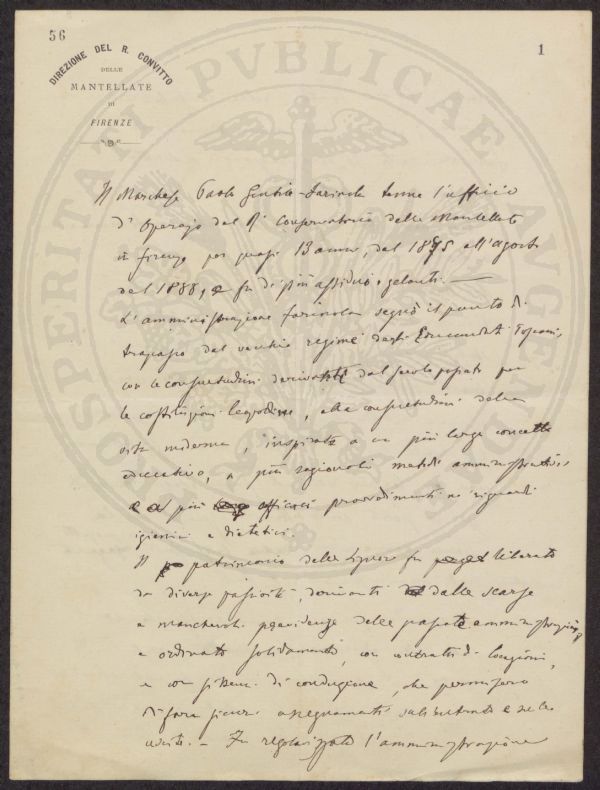 56
1
DIREZIONE DEL R. CONVITTO
DELLE
MANTELLATE
DI
FIRENZE
Il Marchese Paolo Gentile-Farinola tenne l'ufficio
d'Operajo del R. Conservatorio delle Mantellate
in Firenze per quasi 13 anni, dal 1875 all'agosto
del 1888, e fu de' più assidui e zelanti. —
L'amministrazione Farinola segnò il punto di
trapasso dal vecchio regime degli Educandati Toscani,
con le consuetudini derivate dal secolo passato per
le costituzioni leopoldine, alle consuetudini della
vita moderna, inspirate a un più largo concetto
educativo, a più ragionevoli metodi amministrativi,
e a più efficaci provvedimenti ne' riguardi
igienici e dietetici.
Il patrimonio delle Signore fu liberato
da diverse passività, derivanti dalle scarse
e manchevoli previdenze delle passate amministrazioni,
e ordinato solidamente, con contratti di locazioni,
e con sistemi di conduzione, che permisero
di fare sicuri assegnamenti sulle entrate e sulle
uscite. — Fu regolarizzata l'amministrazione
PROSPERITATI PVBLICAE AVGENDAE